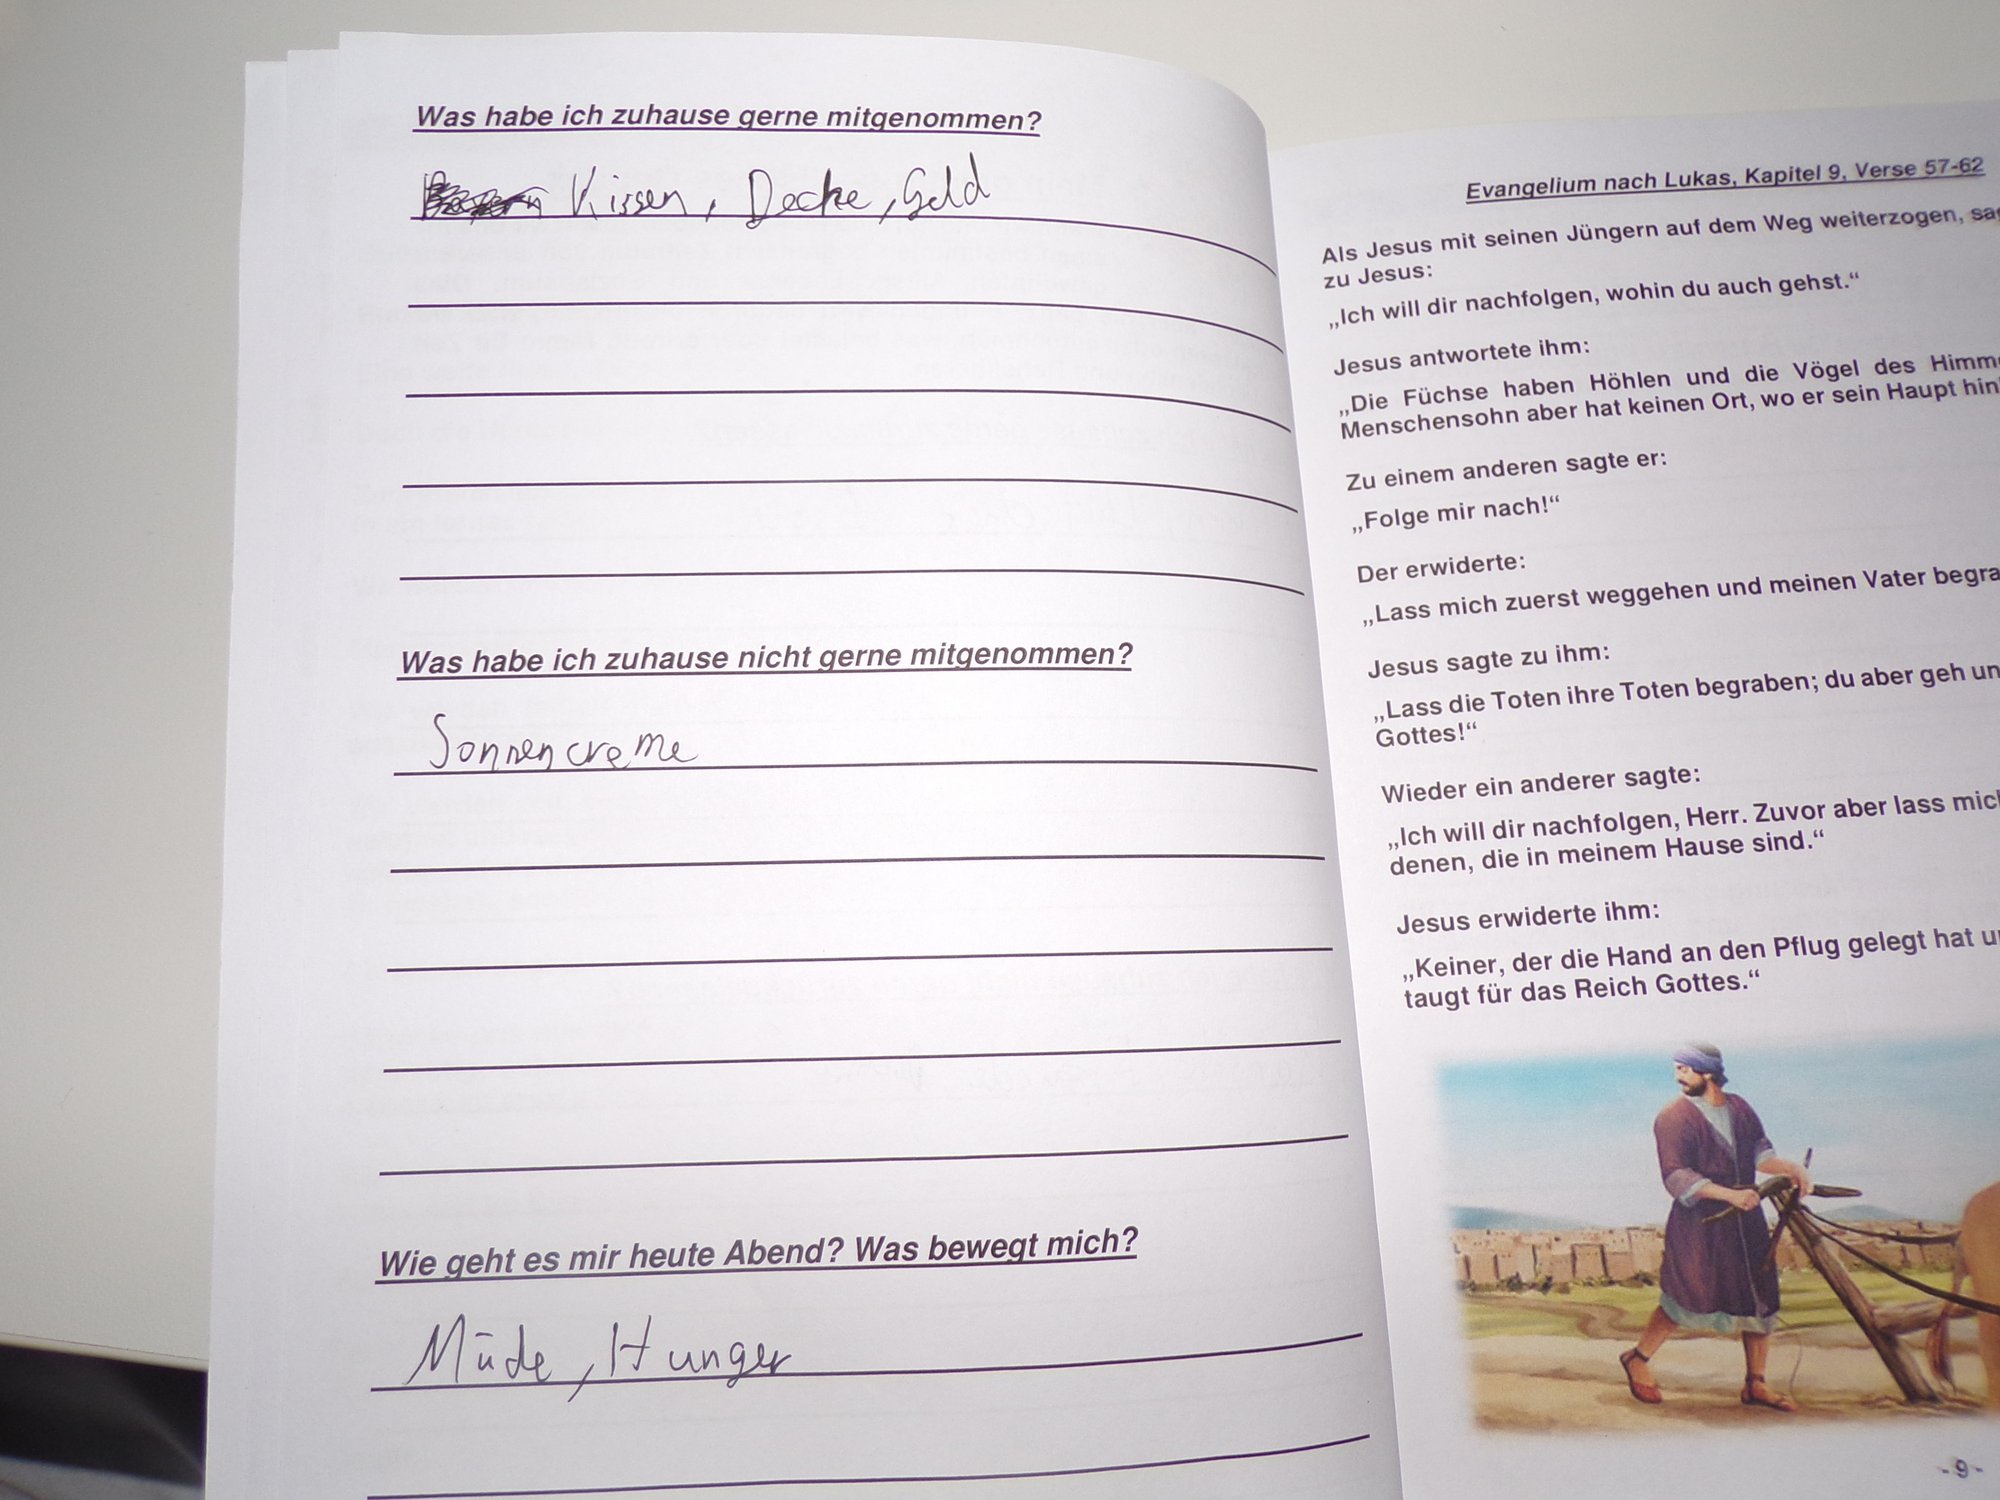 Was habe ich zuhause gerne mitgenommen?
Kissen, Decke, Geld
Was habe ich zuhause nicht gerne mitgenommen?
Sonnencreme
Wie geht es mir heute Abend? Was bewegt mich?
Müde, Hunger
Evangelium nach Lukas, Kapitel 9, Verse 57-62
Als Jesus mit seinen Jüngern auf dem Weg weiterzogen,
zu Jesus:
„Ich will dir nachfolgen, wohin du auch gehst.“
Jesus antwortete ihm:
„Die Füchse haben Höhlen und die Vögel des Himm
Menschensohn aber hat keinen Ort, wo er sein Haupt hin
Zu einem anderen sagte er:
„Folge mir nach!“
Der erwiderte:
„Lass mich zuerst weggehen und meinen Vater begra
Jesus sagte zu ihm:
„Lass die Toten ihre Toten begraben; du aber geh un
Gottes!“
Wieder ein anderer sagte:
„Ich will dir nachfolgen, Herr. Zuvor aber lass mich
denen, die in meinem Hause sind.“
Jesus erwiderte ihm:
„Keiner, der die Hand an den Pflug gelegt hat un
taugt für das Reich Gottes.“
- 9 -